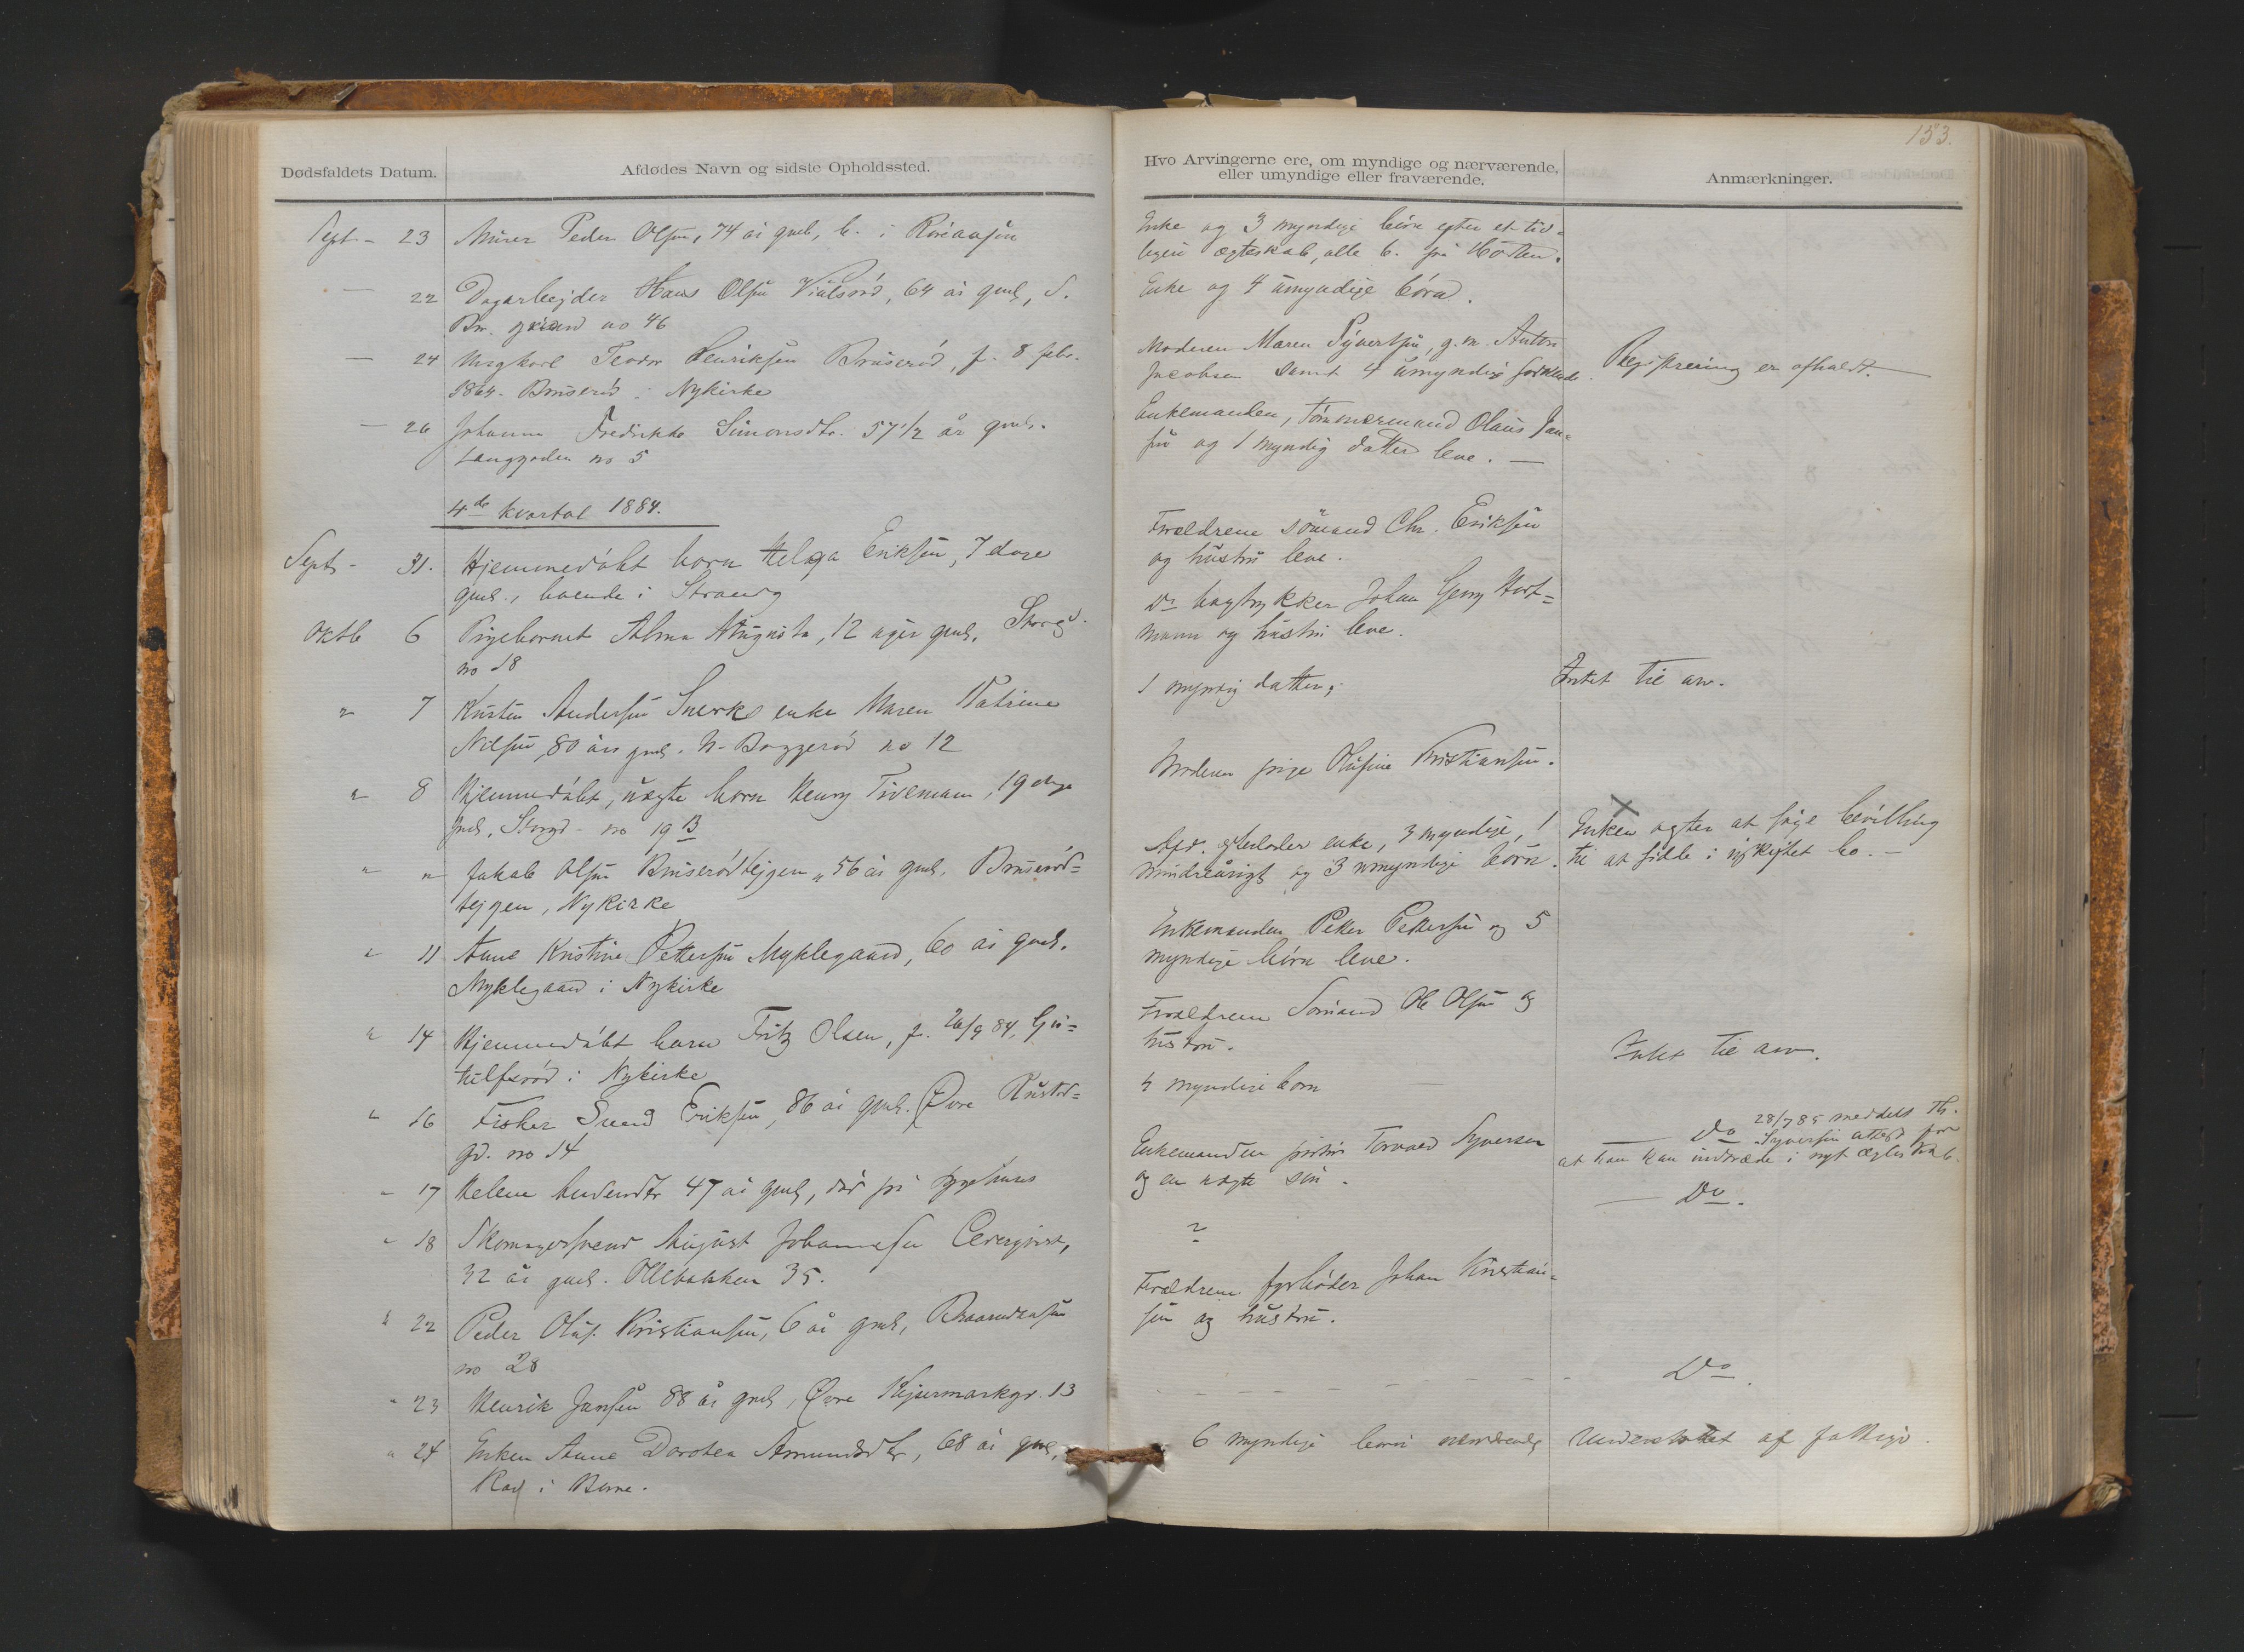 153.
Dødsfaldets Datum.
Afdødes Navn og sidste Opholdssted.
Sept - 23 Murer Peder Olsen, 74 år gml, b. i
— 22 Dagarbejder Hans Olsen 64 år gml, S.
Br. no 46
— 24 Ungkarl Teodor Henriksen Bruserød, f. 8 febr.
1864 - Bruserød i Nykirke
— 26 Johanne Fredrikke Simonsdtr. 57 1/2 år gml.
Langgaden no 5
4de kvartal 1884.
Sept - 31. Hjemmedøbt barn Helga Eriksen, 7 dage
gml., boende i
Oktb 6 Pigebarnet Alma Augusta, 12 uger gml. Storgd.
no 18
" 7 Andersen enke Maren Katrine
Nilsen, 80 års gml. N. Baggerød no 12
" 8 Hjemmedøbt, uægte barn Henry 19 dage
gml. Storgd - no 19 B
" " Jakob Olsen Bruserødtejgen, 56 år gml. Bruserød=
tejgen, Nykirke
" 11 Anne Kristine Pettersen Myklegaard, 60 år gml.
Myklegaard i Nykirke
" 14 Hjemmedøbt barn Fritz Olsen, f. 26/9 84,
i Nykirke
" 16 Fisker Svend Eriksen, 86 år gml. Øvre
gd. no 14
" 17 Helene 47 år gml, død på sygehuset
" 18 Skomagersvend August Johannesen
32 år gml. Ollebakken 35.
" 22 Peder Olaf Kristiansen, 6 år gml, Braarudaasen
no 28
" 23 Henrik Jansen 88 år gml, Øvre Kejsermarkgd. 13
" 24 Enken Anne Dorotea Amundsdtr, 68 år gml,
i Borre.
Hvo Arvingerne ere, om myndige og nærværende,
eller umyndige eller fraværende.
Anmærkninger.
Enke og 3 myndige børn efter et tid=
ligere ægteskab, alle b. på Horten.
Enke og 4 umyndige børn.
Moderen Maren Syvertsen, g. m. Anton
Jacobsen samt 4 umyndige søskende. Registrering er afholdt. —
Enkemanden, Tømmermand Olaus Jan=
sen og 1 myndig datter leve. —
Forældrene sømand Chr. Eriksen
og hustru leve.
Do bogtrykker Johan Georg Hart=
mann og hustru leve.
1 myndig datter. Intet til arv.
Moderen pige Olufine Kristiansen.
Afd. efterlader enke, 3 myndige, 1 Enken agter at søge bevilling
mindreårigt og 3 umyndige børn. til at sidde i uskiftet bo. —
Enkemanden Petter Pettersen og 5
myndige børn leve.
Forældrene Sømand Ole Olsen og
hustru.
4 myndige børn Intet til arv.
Enkemanden Torvald Syversen Do 28/7 85 meddelt Th.
og en uægte søn. Syversen attest for
at han kan indtræde i nyt ægteskab.
? — Do.
Forældrene fyrbøder Johan Kristian=
sen og hustru.
- - - - - - - - Do.
6 myndige børn nærværende Understøttet af fattigv.